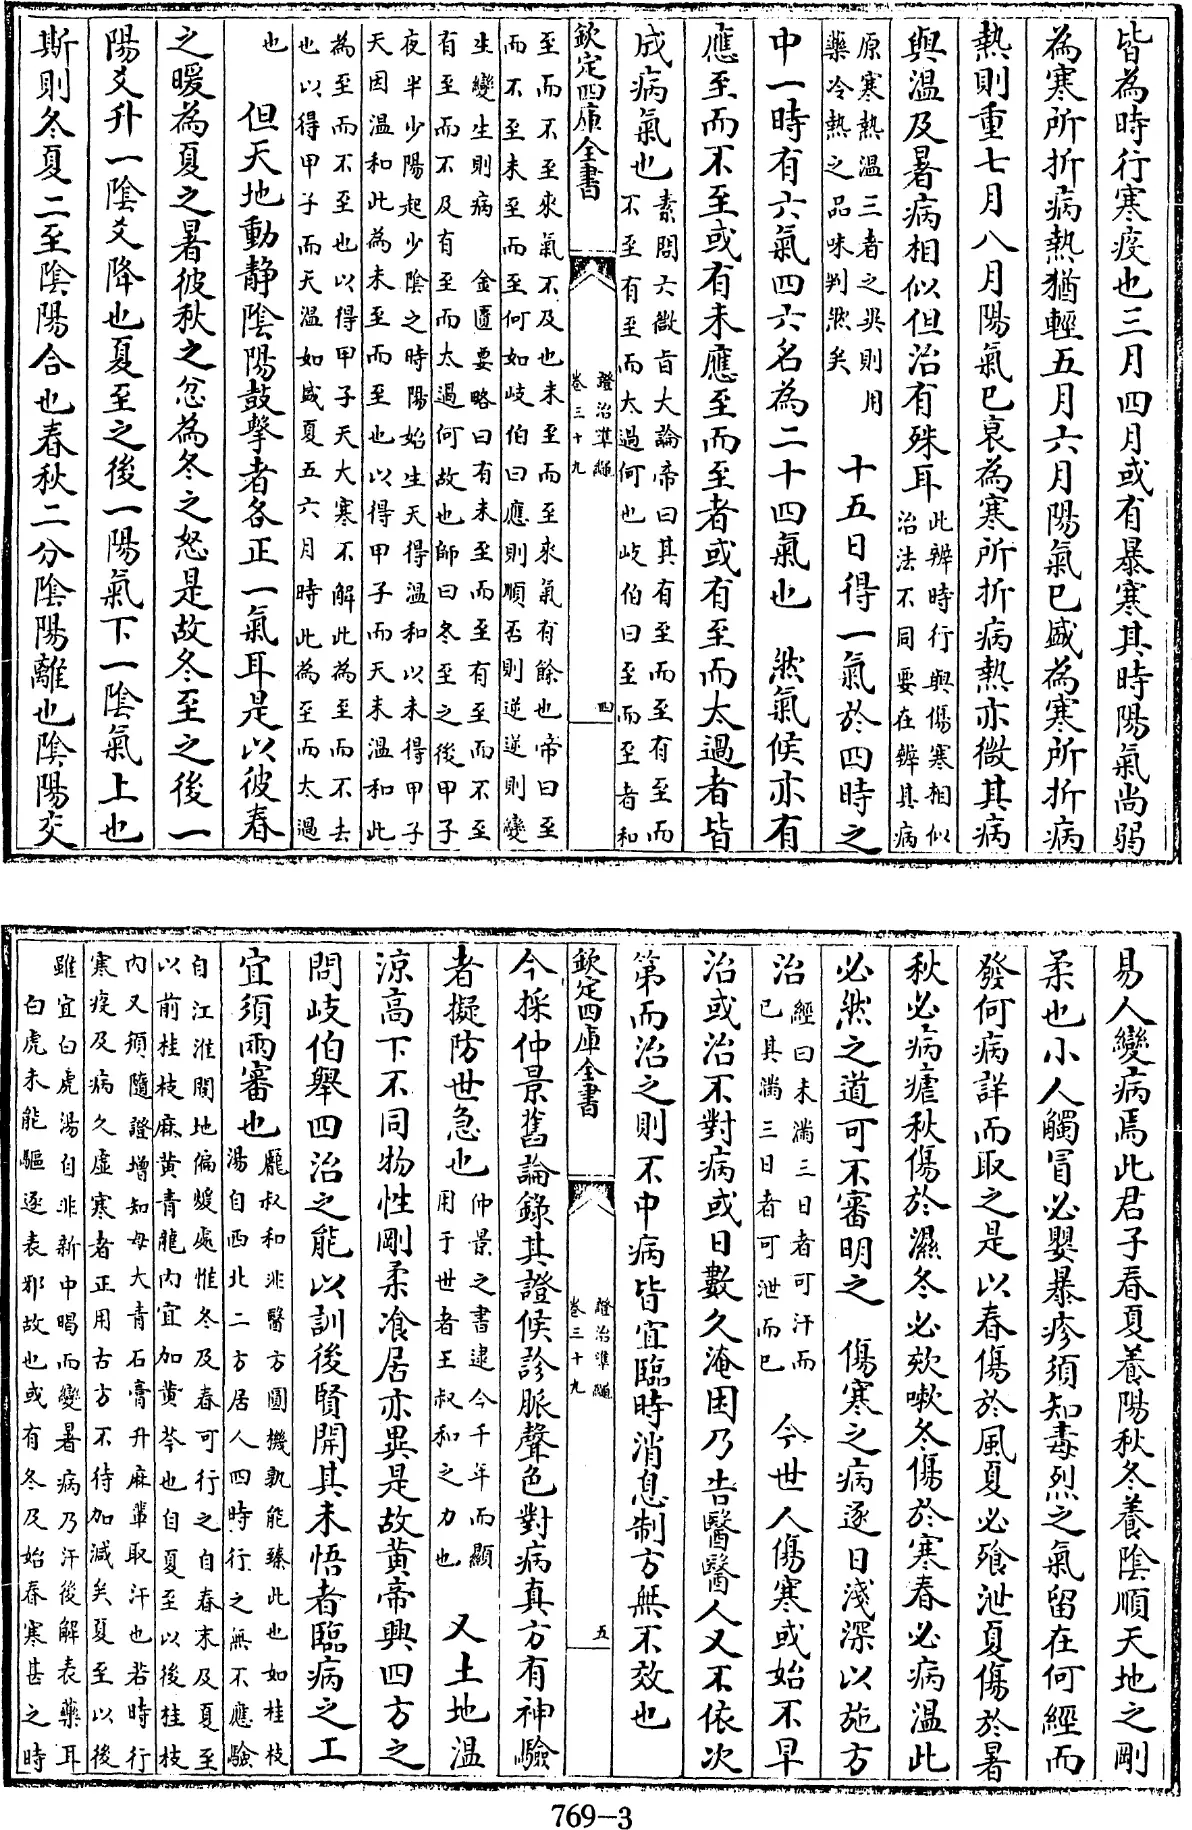 皆為時行寒疫也三月四月或有暴寒其時陽氣尚弱
為寒所折病熱猶輕五月六月陽氣已盛為寒所折病
熱則重七月八月陽氣已衰為寒所折病熱亦微其病
與温及暑病相似但治有殊耳此辨時行與傷寒相似
治法不同要在辨其病
原寒熱温三者之異則用
藥冷熱之品味判然矣
十五日得一氣於四時之
中一時有六氣四六名為二十四氣也 然氣候亦有
應至而不至或有未應至而至者或有至而太過者皆
成病氣也素問六微旨大論帝曰其有至而至有至而
不至有至而太過何也岐伯曰至而至者和
欽定四庫全書
證治準繩
卷三十九
四
至而不至來氣不及也未至而至來氣有餘也帝曰至
而不至未至而至何如岐伯曰應則順否則逆逆則變
生變生則病 金匱要略曰有未至而至有至而不至
有至而不及有至而太過何故也師曰冬至之後甲子
夜半少陽起少陰之時陽始生天得温和以未得甲子
天因温和此為未至而至也以得甲子而天未温和此
為至而不至也以得甲子天大寒不解此為至而不去
也以得甲子而天温如盛夏五六月時此為至而太過
也
但天地動静陰陽鼓擊者各正一氣耳是以彼春
之暖為夏之暑彼秋之忿為冬之怒是故冬至之後一
陽爻升一陰爻降也夏至之後一陽氣下一陰氣上也
斯則冬夏二至陰陽合也春秋二分陰陽離也陰陽交
易人變病焉此君子春夏養陽秋冬養陰順天地之剛
柔也小人觸冒必嬰暴疹須知毒烈之氣留在何經而
發何病詳而取之是以春傷於風夏必飱泄夏傷於暑
秋必病瘧秋傷於濕冬必欬嗽冬傷於寒春必病温此
必然之道可不審明之 傷寒之病逐日淺深以施方
治經曰未滿三日者可汗而
已其滿三日者可泄而已
今世人傷寒或始不早
治或治不對病或日數久淹困乃告醫醫人又不依次
第而治之則不中病皆宜臨時消息制方無不效也
欽定四庫全書
證治準繩
卷三十九
五
今採仲景舊論錄其證候診脈聲色對病真方有神驗
者擬防世急也仲景之書逮今千年而顯
用于世者王叔和之力也
又土地温
凉高下不同物性剛柔飡居亦異是故黄帝興四方之
問岐伯舉四治之能以訓後賢開其未悟者臨病之工
宜須兩審也龎叔和非醫方圓機孰能臻此也如桂枝
湯自西北二方居人四時行之無不應驗
自江淮間地偏煖處惟冬及春可行之自春末及夏至
以前桂枝麻黄青龍内宜加黄芩也自夏至以後桂枝
内又須隨證增知母大青石膏升麻軰取汗也若時行
寒疫及病久虚寒者正用古方不待加減矣夏至以後
雖宜白虎湯自非新中暍而變暑病乃汗後解表藥耳
白虎未能驅逐表邪故也或有冬及始春寒甚之時
769-3